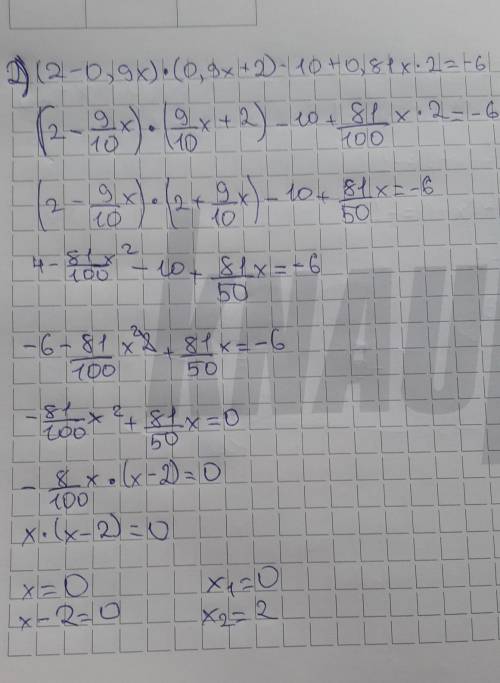 2) (2-0,9x)·(0,9x+2)-10+0,81x·2=-6
(2-9/10x)·(9/10x+2)-10+81/100x·2=-6
(2-9/10x)·(2+9/10x)-10+81/50x=-6
4-81x²/100-10+81/50x=-6
-6-81/100x²+81/50x=-6
-81/100x²+81/50x=0
-8/100x·(x-2)=0
x·(x-2)=0
x=0 x₁=0
x-2=0 x₂=2
KNAUF